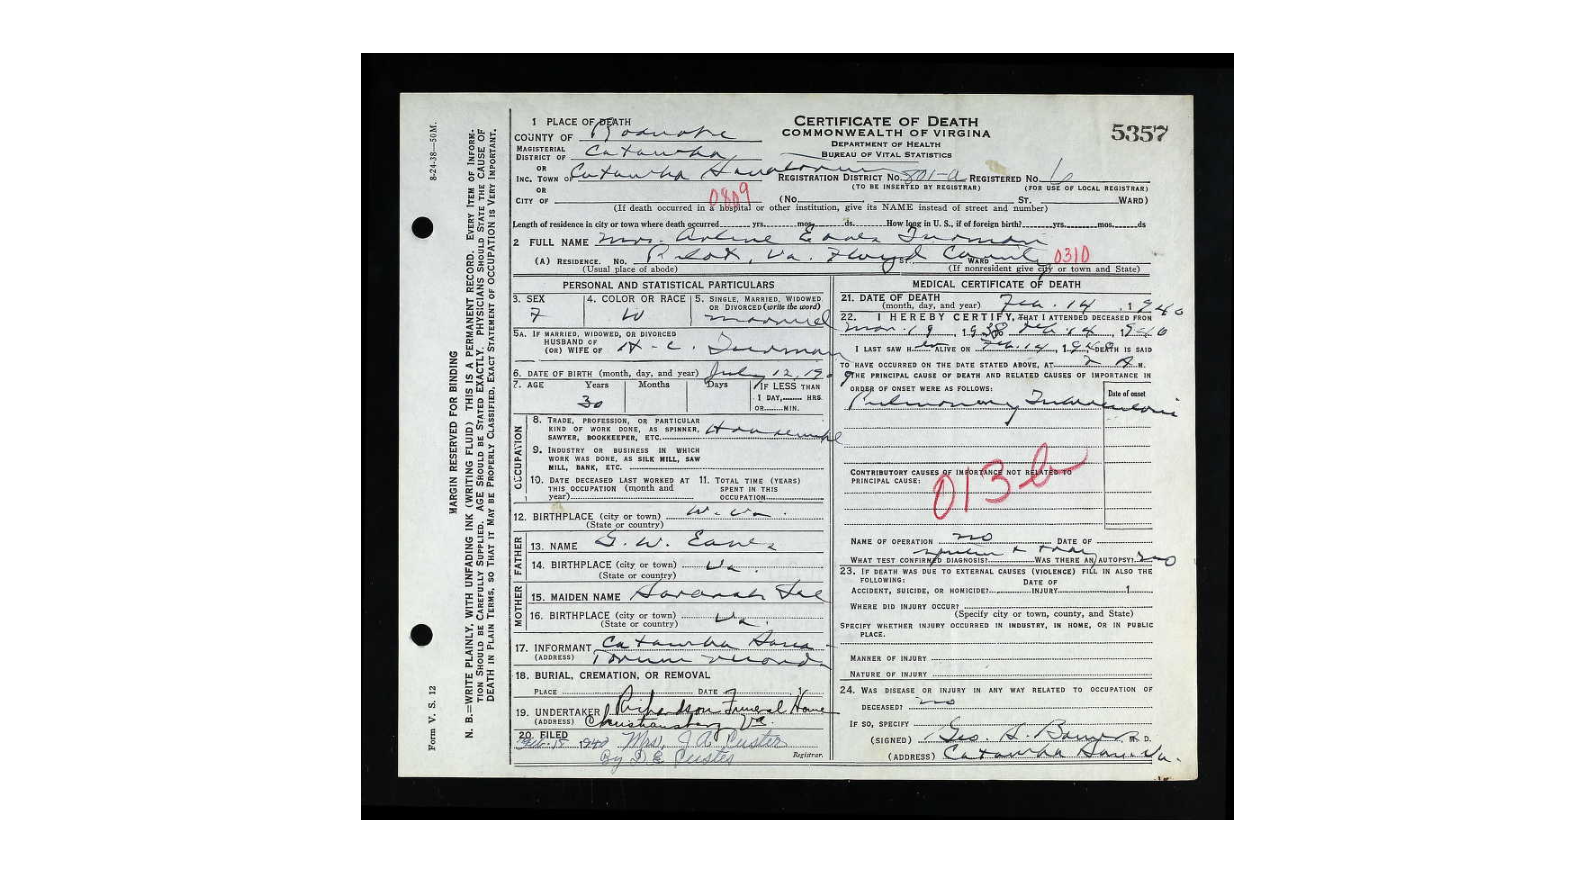 8-24-38—50M.
MARGIN RESERVED FOR BINDING
N. B.=WRITE PLAINLY, WITH UNFADING INK (WRITING FLUID) THIS IS A PERMANENT RECORD. EVERY ITEM OF INFORM-
TION SHOULD BE CAREFULLY SUPPLIED. AGE SHOULD BE STATED EXACTLY. PHYSICIANS SHOULD STATE THE CAUSE OF
DEATH IN PLAIN TERMS, SO THAT IT MAY BE PROPERLY CLASSIFIED. EXACT STATEMENT OF OCCUPATION IS VERY IMPORTANT.
Form V. S. 12
1 PLACE OF DEATH
COUNTY OF Roanoke
MAGISTERIAL DISTRICT OF Catawba
OR
INC. TOWN OF Catawba Sanatorium
OR
CITY OF
CERTIFICATE OF DEATH
COMMONWEALTH OF VIRGINIA
DEPARTMENT OF HEALTH
BUREAU OF VITAL STATISTICS
5357
REGISTRATION DISTRICT NO. 801-a REGISTERED NO. 6
(TO BE INSERTED BY REGISTRAR) (FOR USE OF LOCAL REGISTRAR)
0809
(No. ST. WARD)
(If death occurred in a hospital or other institution, give its NAME instead of street and number)
Length of residence in city or town where death occurred yrs. mos. ds. How long in U. S., if of foreign birth? yrs. mos. ds
2 FULL NAME Mrs. Arlene Eanes Turman
(A) RESIDENCE. No. Pilot, Va. Floyd County ST. WARD 0310
(Usual place of abode) (If nonresident give city or town and State)
PERSONAL AND STATISTICAL PARTICULARS
3. SEX F
4. COLOR OR RACE W
5. SINGLE, MARRIED, WIDOWED, OR DIVORCED (write the word) married
5A. IF MARRIED, WIDOWED, OR DIVORCED
HUSBAND OF
(OR) WIFE OF H. C. Turman
6. DATE OF BIRTH (month, day, and year) July 12, 190
9
7. AGE Years Months Days IF LESS THAN
30 1 DAY, HRS.
OR MIN.
OCCUPATION
8. TRADE, PROFESSION, OR PARTICULAR
KIND OF WORK DONE, AS SPINNER,
SAWYER, BOOKKEEPER, ETC. Housewife
9. INDUSTRY OR BUSINESS IN WHICH
WORK WAS DONE, AS SILK MILL, SAW
MILL, BANK, ETC.
10. DATE DECEASED LAST WORKED AT
THIS OCCUPATION (month and
year)
11. TOTAL TIME (YEARS)
SPENT IN THIS
OCCUPATION
12. BIRTHPLACE (city or town) W. Va.
(State or country)
FATHER
13. NAME G. W. Eanes
14. BIRTHPLACE (city or town) Va.
(State or country)
MOTHER
15. MAIDEN NAME Savanah
16. BIRTHPLACE (city or town) Va.
(State or country)
17. INFORMANT Catawba Sana-
(ADDRESS) torium records
18. BURIAL, CREMATION, OR REMOVAL
PLACE DATE 1
19. UNDERTAKER Richardson Funeral Home
(ADDRESS) Christiansburg Va.
20. FILED Feb. 15 1940 Mrs. J A Custer
By D E Custer Registrar.
MEDICAL CERTIFICATE OF DEATH
21. DATE OF DEATH Feb. 14, 1940
(month, day, and year)
22. I HEREBY CERTIFY, THAT I ATTENDED DECEASED FROM
Mar. 19, 1938 Feb. 14, 1940
I LAST SAW HER ALIVE ON Feb. 14, 1940, DEATH IS SAID
TO HAVE OCCURRED ON THE DATE STATED ABOVE, AT 2 A.M.
THE PRINCIPAL CAUSE OF DEATH AND RELATED CAUSES OF IMPORTANCE IN
ORDER OF ONSET WERE AS FOLLOWS:
Date of onset
Pulmonary Tuberculosis
CONTRIBUTORY CAUSES OF IMPORTANCE NOT RELATED TO
PRINCIPAL CAUSE:
013b
NAME OF OPERATION no DATE OF
WHAT TEST CONFIRMED DIAGNOSIS? sputum + xray WAS THERE AN AUTOPSY? no
23. IF DEATH WAS DUE TO EXTERNAL CAUSES (VIOLENCE) FILL IN ALSO THE
FOLLOWING:
ACCIDENT, SUICIDE, OR HOMICIDE? DATE OF INJURY 1
WHERE DID INJURY OCCUR?
(Specify city or town, county, and State)
SPECIFY WHETHER INJURY OCCURRED IN INDUSTRY, IN HOME, OR IN PUBLIC
PLACE.
MANNER OF INJURY
NATURE OF INJURY
24. WAS DISEASE OR INJURY IN ANY WAY RELATED TO OCCUPATION OF
DECEASED? no
IF SO, SPECIFY
(SIGNED) Geo. A. M. D.
(ADDRESS) Catawba San. Va.